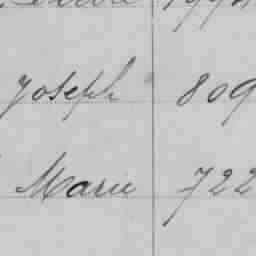 Joseph 809
Marie 722